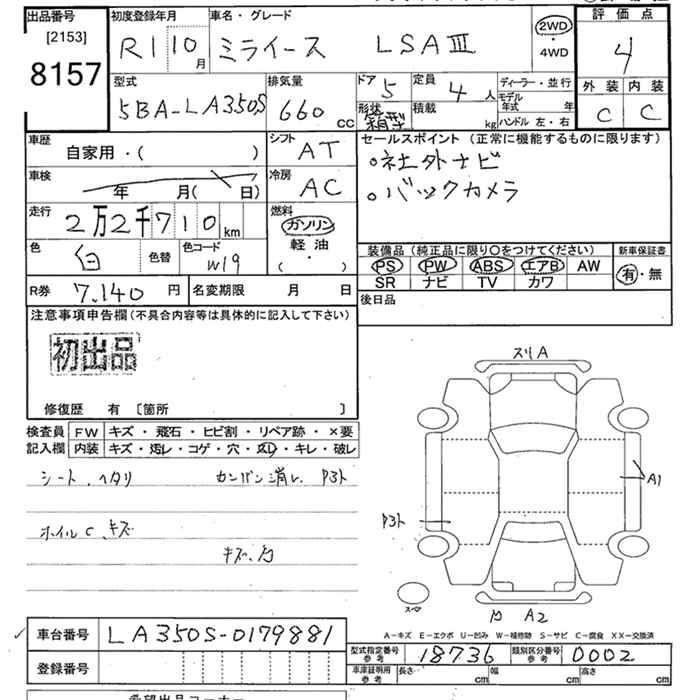 出品番号
[2153]
8157
初度登録年月
R1 10月
車名・グレード
ミライース LSAⅢ
2WD
・4WD
評価点
4
外装 内装
C C
型式
5BA-LA350S
排気量
660 cc
ドア 5
形状 箱型
定員 4人
積載 kg
ディーラー・並行
モデル年式 年
ハンドル 左・右
車歴
自家用・( )
シフト AT
セールスポイント (正常に機能するものに限ります)
○社外ナビ
○バックカメラ
車検
年 月( 日)
冷房 AC
走行
2万2千710km
燃料
ガソリン
軽油
( ・ )
色 白
色替
色コード W19
装備品 (純正品に限り○をつけてください)
PS PW ABS エアB AW
SR ナビ TV カワ
新車保証書
有・無
R券 7,140円
名変期限 月 日
後日品
注意事項申告欄(不具合内容等は具体的に記入して下さい)
初出品
修復歴 有 [箇所 ]
検査員記入欄
FW キズ・飛石・ヒビ割・リペア跡・×要
内装 キズ・汚レ・コゲ・穴・スレ・キレ・破レ
シート.ヘタリ カンバン消し P3ト
ホイルC.キズ
キズ.凹
スリA
A1
P3ト
スペア
A2
A-キズ E-エクボ U-凹み W-補修跡 S-サビ C-腐食 XX-交換済
車台番号 LA350S-0179881
登録番号
型式指定番号 参考 18736
類別区分番号 参考 0002
車庫証明用 参考
長さ cm 幅 cm 高さ cm
希望出品コーナー